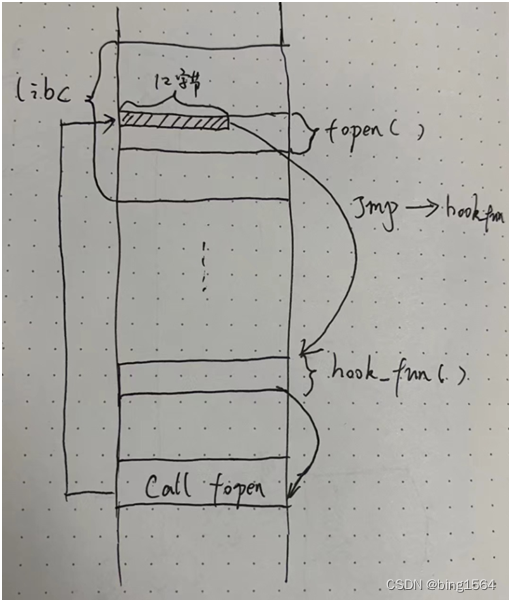 libc
12字节
fopen()
Jmp → hook_fun
hook_fun()
Call fopen
CSDN @bing1564